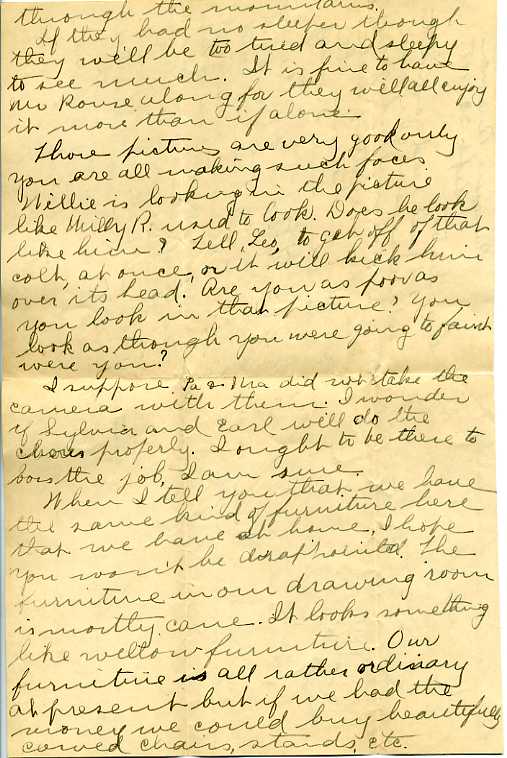 through the mountains.
If they had no sleeper though
they will be too tired and sleepy
to see much. It is fine to have
Mr Rouse along for they will all enjoy
it more than if alone.
Those pictures are very good only
you are all making such faces
Willie is looking in the picture
like Willy R. used to look. Does he look
like him? Tell Leo, to get off of that
colt, at once, or it will kick him
over its head. Are you as poor as
you look in that picture? You
look as though you were going to faint
were you?
I suppose Pa & Ma did not take the
camera with them. I wonder
if Sylvia and Earl will do the
chores properly. I ought to be there to
boss the job, I am sure.
When I tell you that we have
the same kind of furniture here
that we have at home, I hope
you won't be disappointed. The
furniture in our drawing room
is mostly cane. It looks something
like willow furniture. Our
furniture is all rather ordinary
at present but if we had the
money we could buy beautifully
carved chairs, stands, etc.